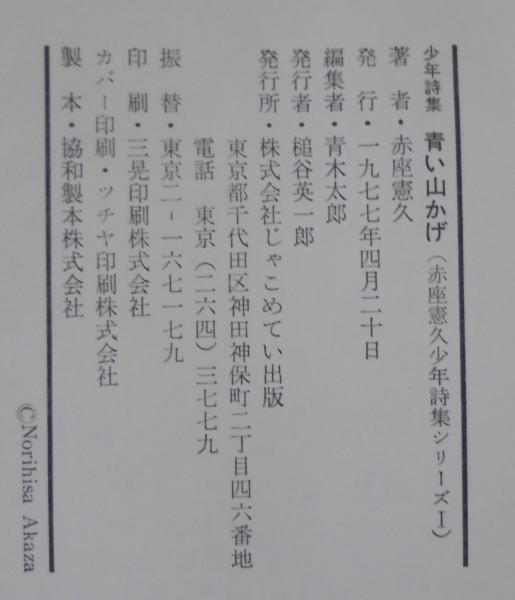 少年詩集 青い山かげ（赤座憲久少年詩集シリーズⅠ）
著者・赤座憲久
発行・一九七七年四月二十日
編集者・青木太郎
発行者・槌谷英一郎
発行所・株式会社じゃこめてい出版
東京都千代田区神田神保町二丁目四六番地
電話 東京（二六四）三七七九
振替・東京二－一六七一七九
印刷・三晃印刷株式会社
カバー印刷・ツチヤ印刷株式会社
製本・協和製本株式会社
©Norihisa Akaza